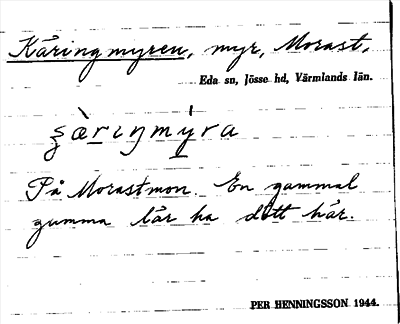 Käringmyren, myr, Morast.
Eda sn, Jösse hd, Värmlands län.
ʂὰrıŋmýra
På Morastmon. En gammal
gumma lär ha dött här.
PER HENNINGSSON 1944.